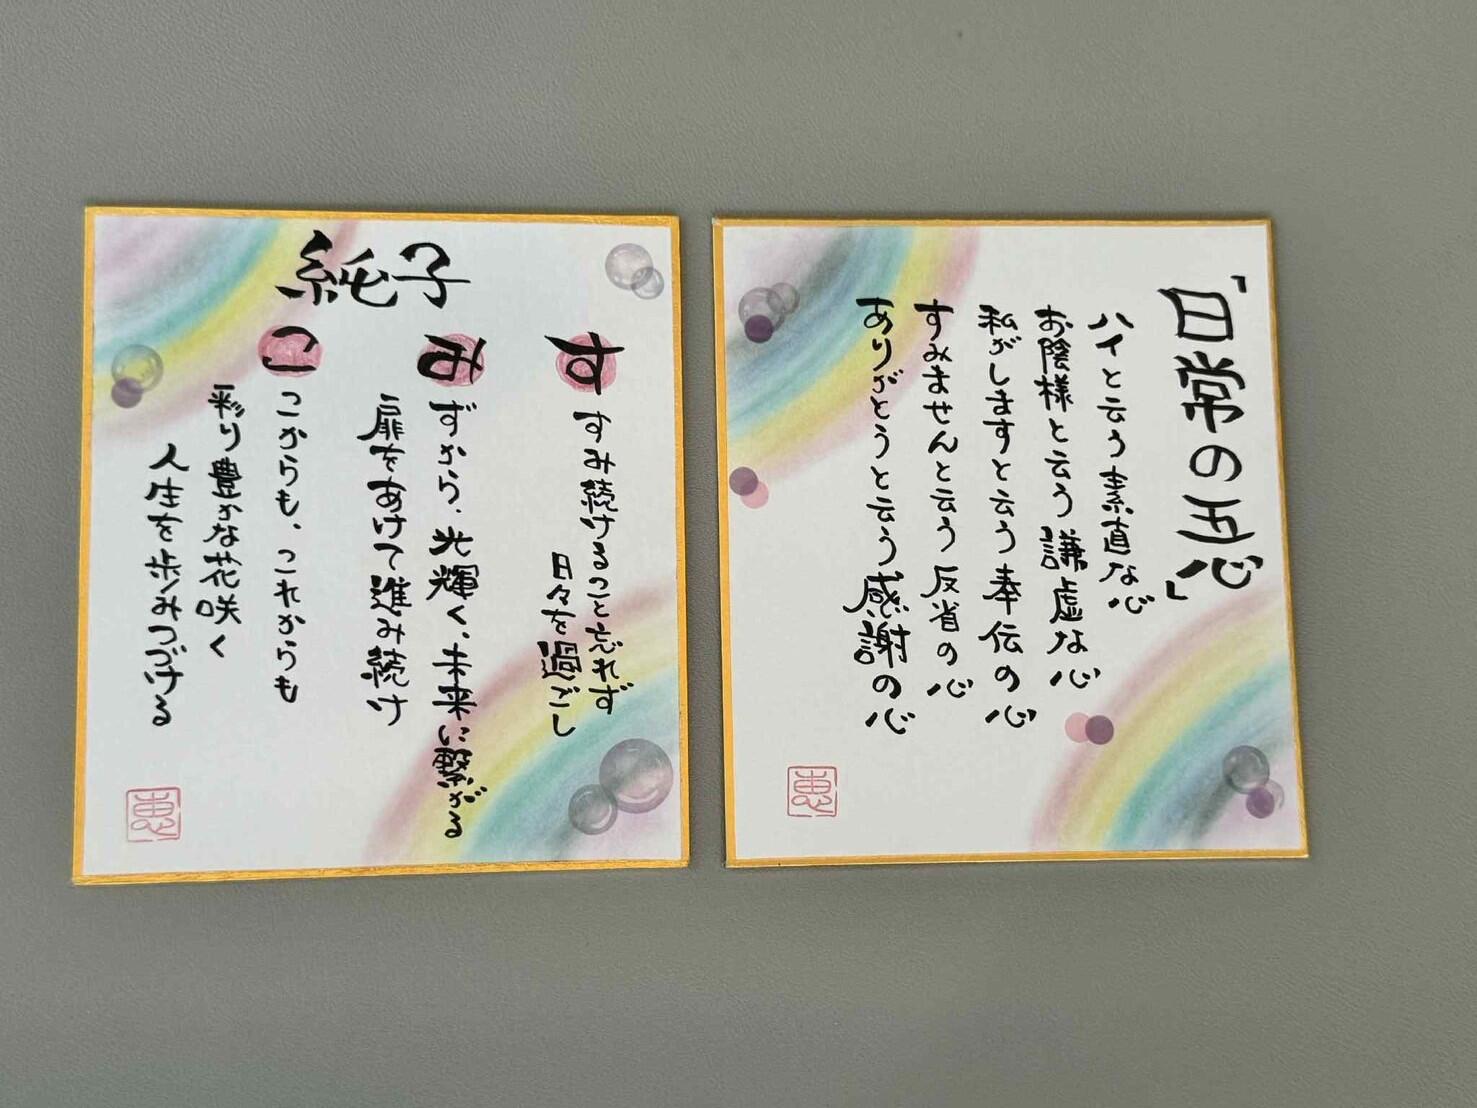 純子
すすみ続けること忘れず
日々を過ごし
みずから、光輝く、未来に繋がる
扉をあけて進み続け
ここからも、これからも
彩り豊かな花咲く
人生を歩みつづける
恵
「日常の五心」
ハイと云う素直な心
お陰様と云う謙虚な心
私がしますと云う奉伝の心
すみませんと云う反省の心
ありがとうと云う感謝の心
恵